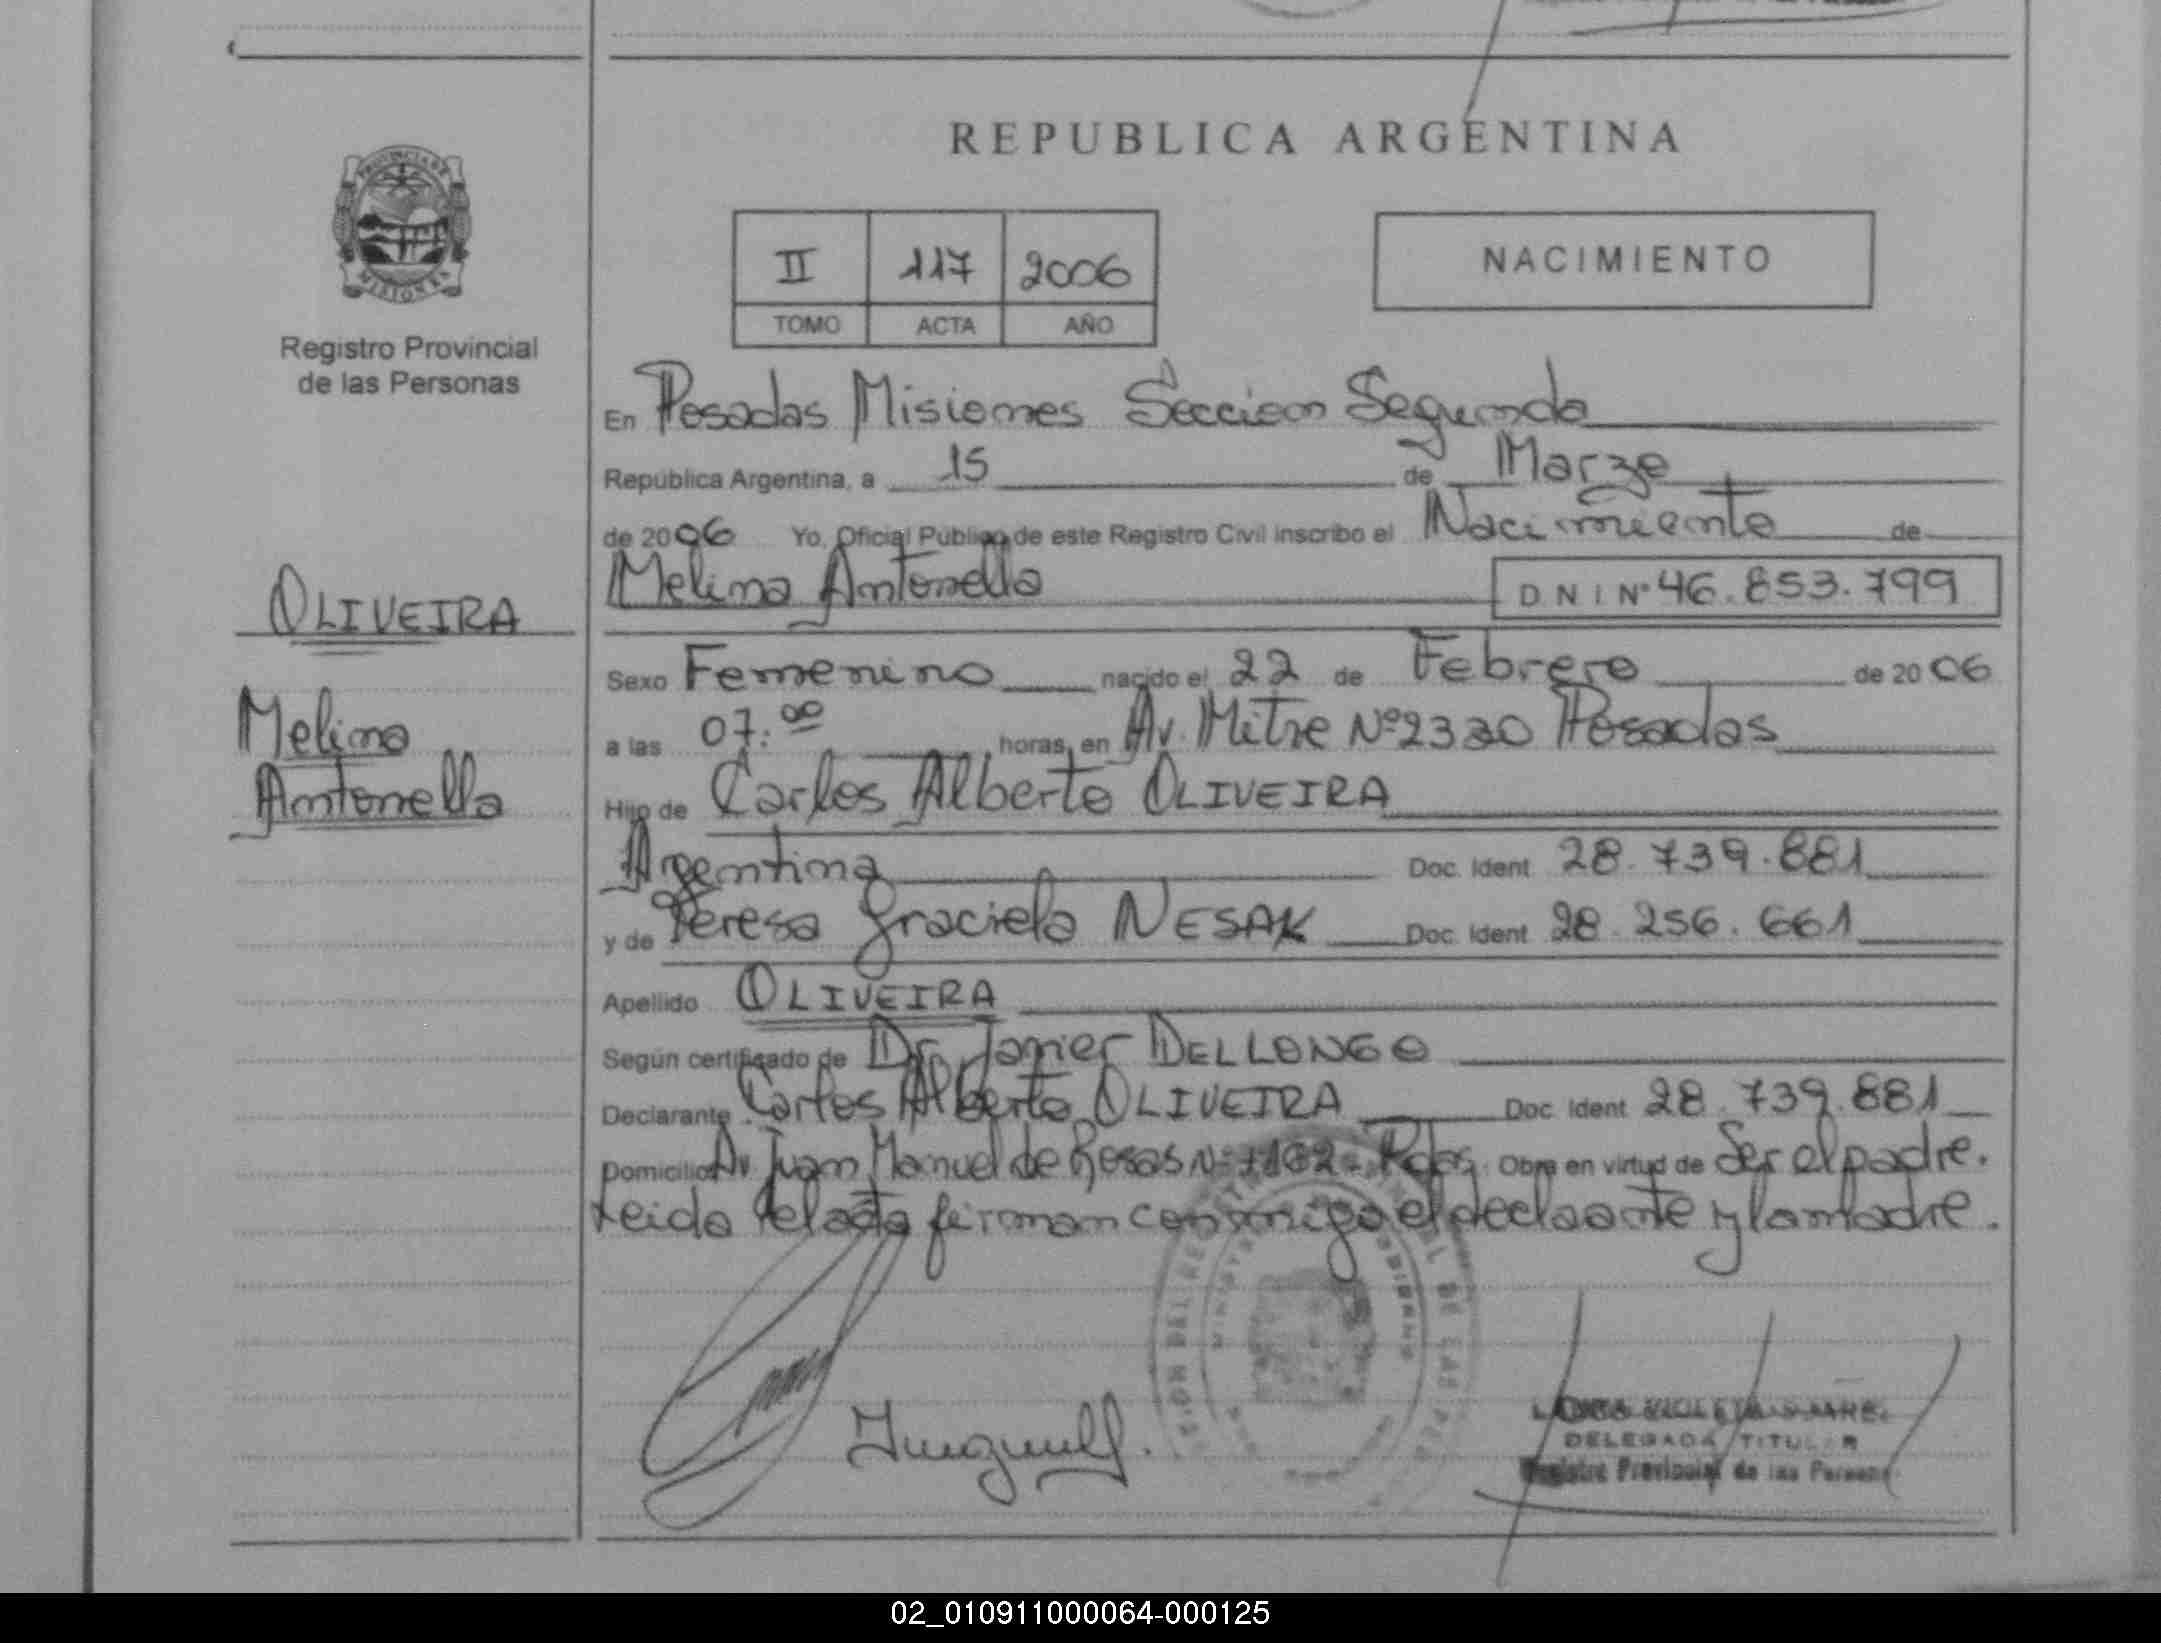 REPUBLICA ARGENTINA
PROVINCIA DE
MISIONES
Registro Provincial
de las Personas
II 117 2006
TOMO ACTA AÑO
NACIMIENTO
En Posadas Misiones Seccion Segunda
República Argentina, a 15 de Marzo
de 2006 Yo, Oficial Público de este Registro Civil inscribo el Nacimiento de
Melina Antonella D N I Nº 46.853.799
OLIVEIRA
Melina
Antonella
Sexo Femenino nacido el 22 de Febrero de 2006
a las 07:00 horas, en Av. Mitre Nº 2330 Posadas
Hijo de Carlos Alberto OLIVEIRA
Argentina Doc. Ident 28.739.881
y de Teresa Graciela NESAK Doc. Ident 28.256.661
Apellido OLIVEIRA
Según certificado de Dr. Javier DELLONGO
Declarante Carlos Alberto OLIVEIRA Doc. Ident 28.739.881
Domicilio Av. Juan Manuel de Rosas Nº Pdas. Obra en virtud de Ser el padre.
Leida el acta firman conmigo el y la madre.
DELEGADA TITULAR
Registro Provincial de las Personas
02_010911000064-000125